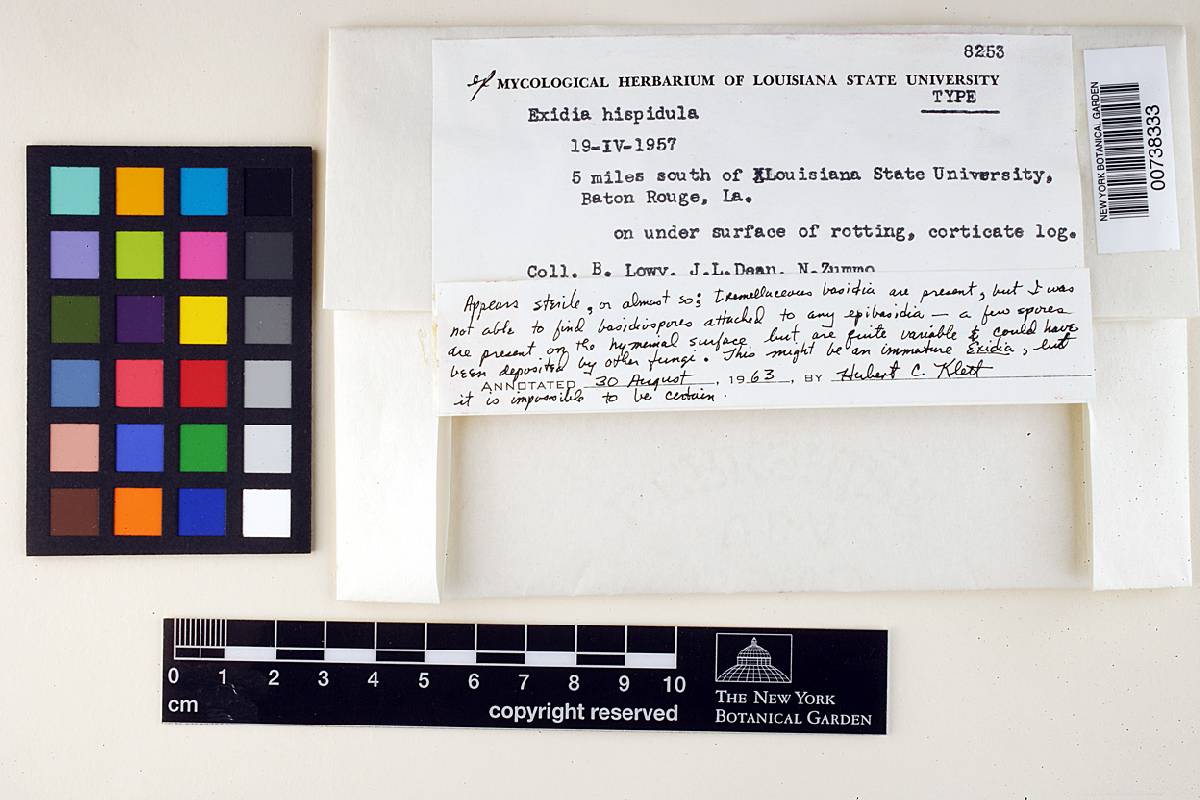 8253
MYCOLOGICAL HERBARIUM OF LOUISIANA STATE UNIVERSITY
TYPE
Exidia hispidula
19-IV-1957
5 miles south of Louisiana State University,
Baton Rouge, La.
on under surface of rotting, corticate log.
Coll. B. Lowy, J.L.Dean, N.Zummo
Appears sterile, or almost so; tremellaceous basidia are present, but I was
not able to find basidiospores attached to any epibasidia — a few spores
are present on the hymenial surface but are quite variable & could have
been deposited by other fungi. This might be an immature Exidia, but
ANNOTATED 30 August, 1963, BY Hubert C. Klett
it is impossible to be certain.
NEW YORK BOTANICAL GARDEN
00738333
0 1 2 3 4 5 6 7 8 9 10
cm
copyright reserved
THE NEW YORK
BOTANICAL GARDEN